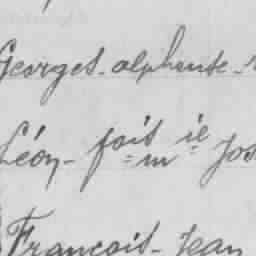 Georges - alphonse -
Léon - fois ie
= m = Jos
François - Jean